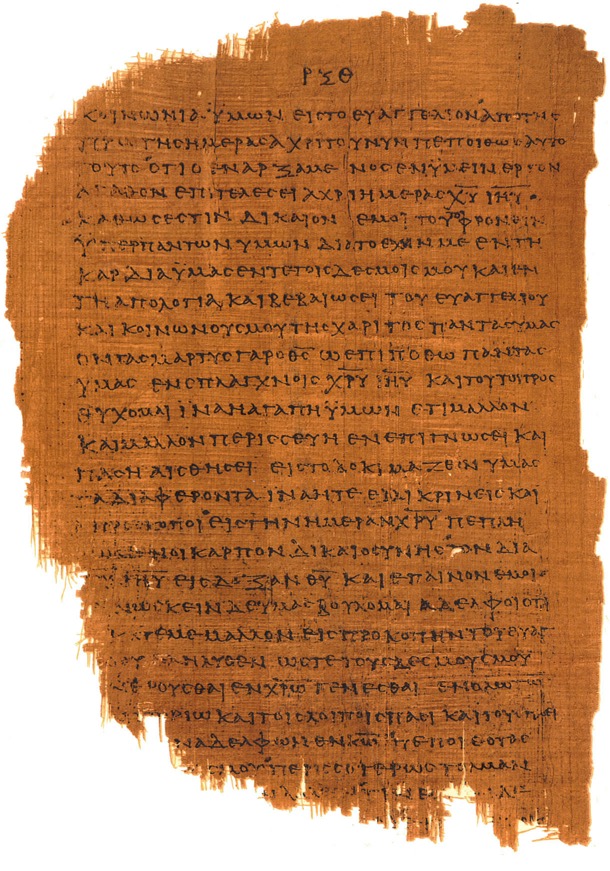 ΡΞΘ
ΚΟΙΝΩΝΙΑ ΫΜΩΝ ΕΙϹ ΤΟ ΕΥΑΓΓΕΛΙΟΝ ΑΠΟ ΤΗϹ
ΠΡΩΤΗϹ ΗΜΕΡΑϹ ΑΧΡΙ ΤΟΥ ΝΥΝ ΠΕΠΟΙΘΩϹ ΑΥΤΟ
ΤΟΥΤΟ ΟΤΙ Ο ΕΝΑΡΞΑΜΕΝΟϹ ΕΝ ΫΜΕΙΝ ΕΡΓΟΝ
ΑΓΑΘΟΝ ΕΠΙΤΕΛΕϹΕΙ ΑΧΡΙ ΗΜΕΡΑϹ Χ̅Υ̅ Ι̅Η̅Υ̅
ΚΑΘΩϹ ΕϹΤΙΝ ΔΙΚΑΙΟΝ ΕΜΟΙ ΤΟΥΤΟ ΦΡΟΝΕΙΝ
ΫΠΕΡ ΠΑΝΤΩΝ ΫΜΩΝ ΔΙΑ ΤΟ ΕΧΕΙΝ ΜΕ ΕΝ ΤΗ
ΚΑΡΔΙΑ ΫΜΑϹ ΕΝ ΤΕ ΤΟΙϹ ΔΕϹΜΟΙϹ ΜΟΥ ΚΑΙ ΕΝ
ΤΗ ΑΠΟΛΟΓΙΑ ΚΑΙ ΒΕΒΑΙΩϹΕΙ ΤΟΥ ΕΥΑΓΓΕΛΙΟΥ
ΚΑΙ ΚΟΙΝΩΝΟΥϹ ΜΟΥ ΤΗϹ ΧΑΡΙΤΟϹ ΠΑΝΤΑϹ ΥΜΑϹ
ΟΝΤΑϹ ΜΑΡΤΥϹ ΓΑΡ Ο Θ̅Ϲ̅ ΩϹ ΕΠΙΠΟΘΩ ΠΑΝΤΑϹ
ΫΜΑϹ ΕΝ ϹΠΛΑΓΧΝΟΙϹ Χ̅Ρ̅Υ̅ Ι̅Η̅Υ̅ ΚΑΙ ΤΟΥΤΟ ΠΡΟϹ
ΕΥΧΟΜΑΙ ΙΝΑ Η ΑΓΑΠΗ ΫΜΩΝ ΕΤΙ ΜΑΛΛΟΝ
ΚΑΙ ΜΑΛΛΟΝ ΠΕΡΙϹϹΕΥΗ ΕΝ ΕΠΙΓΝΩϹΕΙ ΚΑΙ
ΠΑϹΗ ΑΙϹΘΗϹΕΙ ΕΙϹ ΤΟ ΔΟΚΙΜΑΖΕΙΝ ΥΜΑϹ
ΤΑ ΔΙΑΦΕΡΟΝΤΑ ΙΝΑ ΗΤΕ ΕΙΛΙΚΡΙΝΕΙϹ ΚΑΙ
ΑΠΡΟϹΚΟΠΟΙ ΕΙϹ ΤΗΝ ΗΜΕΡΑΝ Χ̅Ρ̅Υ̅ ΠΕΠΛΗ
ΝΟΙ ΚΑΡΠΟΝ ΔΙΚΑΙΟϹΥΝΗϹ ΤΟΝ ΔΙΑ
Ι̅Η̅Υ̅ ΕΙϹ ΔΟΞΑΝ Θ̅Υ̅ ΚΑΙ ΕΠΑΙΝΟΝ ΕΜΟΙ
ΩϹΚΕΙΝ ΔΕ ΥΜΑϹ ΒΟΥΛΟΜΑΙ ΑΔΕΛΦΟΙ ΟΤΙ
ΚΑΤ ΕΜΕ ΜΑΛΛΟΝ ΕΙϹ ΠΡΟΚΟΠΗΝ ΤΟΥ ΕΥΑΓ
ΟΥ ΕΛΗΛΥΘΕΝ ΩϹΤΕ ΤΟΥϹ ΔΕϹΜΟΥϹ ΜΟΥ
ΡΟΥϹ ΕΝ Χ̅Ρ̅Ω̅ ΓΕΝΕϹΘΑΙ ΕΝ ΟΛΩ
ΡΙΩ ΚΑΙ ΤΟΙϹ ΛΟΙΠΟΙϹ ΠΑϹΙ ΚΑΙ ΤΟΥϹ
ΑΔΕΛΦΩΝ ΕΝ Κ̅Ω̅ ΠΕΠΟΙΘΟΤΑϹ
ΜΟΥ ΠΕΡΙϹϹΟΤΕΡΩϹ ΤΟΛΜΑΝ